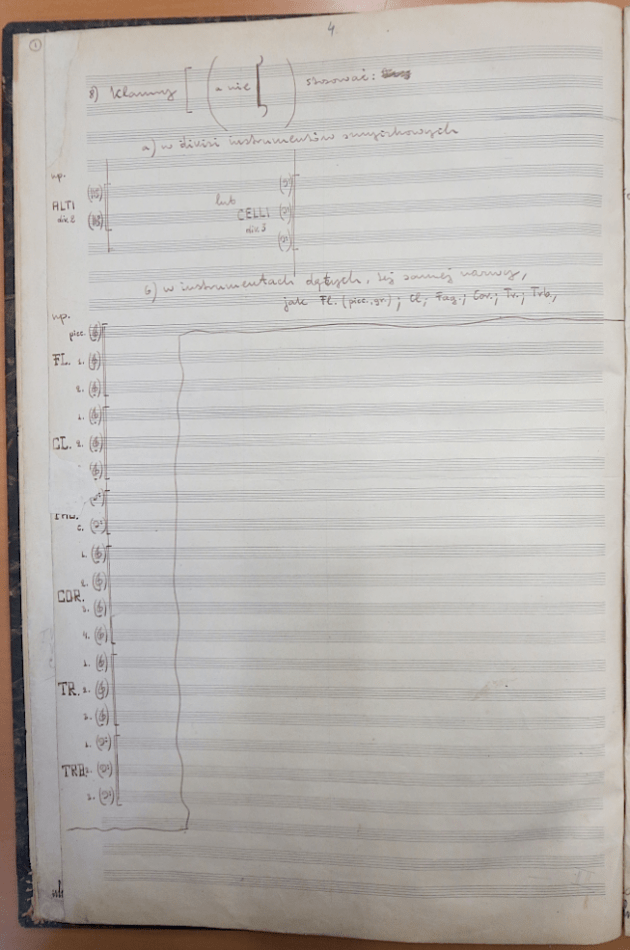 1
4.
8) Klamry [ (a nie [ ) stosować:
a) w divisi instrumentów smyczkowych
np.
ALTI
div. 2
lub
CELLI
div. 3
b) w instrumentach dętych, tej samej nazwy,
jak Fl. (picc., gr.); Cl.; Fag.; Cor.; Tr.; Trb.,
np.
picc.
FL. 1.
2.
1.
CL. 2.
2.
1.
COR.
2.
3.
4.
1.
TR. 2.
3.
1.
TRB. 2.
3.